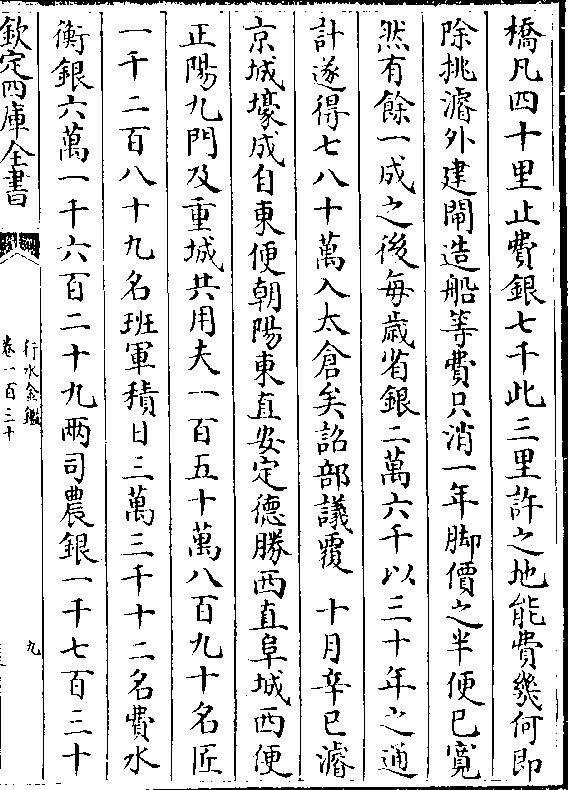 橋凡四十里止費銀七千此三里許之地能費幾何即
除挑濬外建閘造船等費只消一年脚價之半便已寛
然有餘一成之後每歲省銀二萬六千以三十年之通
計遂得七八十萬入太倉矣詔部議覆　十月辛巳濬
京城壕成自東便朝陽東直安定德勝西直阜城西便
正陽九門及重城共用夫一百五十萬八百九十名匠
一千二百八十九名班軍積日三萬三千十二名費水
衡銀六萬一千六百二十九兩司農銀一千七百三十
欽定四庫全書
行水金鑑
卷一百三十
九